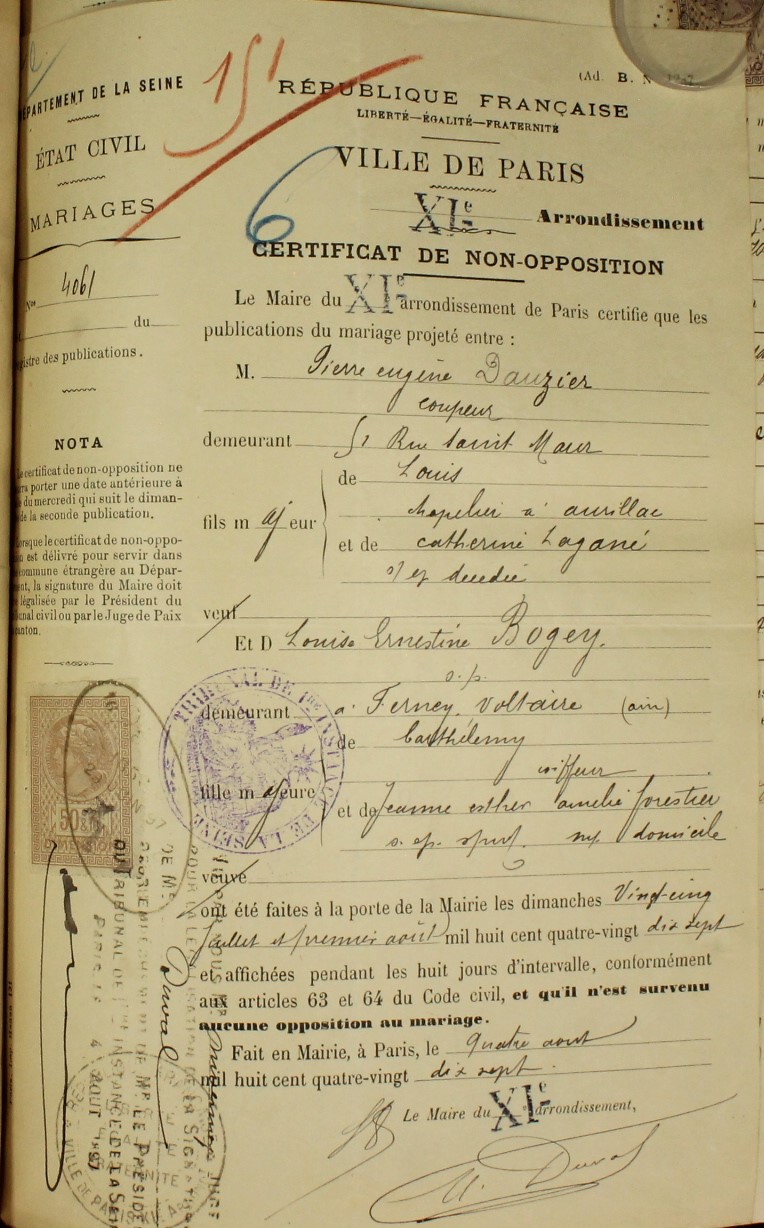 DÉPARTEMENT DE LA SEINE
ÉTAT CIVIL
MARIAGES
Nos 4061
du
registre des publications.
NOTA
Le certificat de non-opposition ne
porter une date antérieure à
du mercredi qui suit le diman-
de la seconde publication.
Lorsque le certificat de non-oppo-
est délivré pour servir dans
commune étrangère au Dépar-
, la signature du Maire doit
légalisée par le Président du
civil ou par le Juge de Paix
canton.
151
6
(Ad. B. N
RÉPUBLIQUE FRANÇAISE
LIBERTÉ—ÉGALITÉ—FRATERNITÉ
VILLE DE PARIS
XIe Arrondissement
CERTIFICAT DE NON-OPPOSITION
Le Maire du XIe arrondissement de Paris certifie que les
publications du mariage projeté entre :
M. Pierre eugène Dauzier
coupeur
demeurant 51 Rue Saint Maur
de Louis
chapelier à aurillac
fils majeur
et de catherine Lagané
décédée
veuf
Et D Louise Ernestine Bogey.
s.p.
demeurant a Ferney. Voltaire (ain)
de barthélemy
coiffeur
fille majeure
et de Jeanne esther amélie forestier
s. p. domicile
veuve
ont été faites à la porte de la Mairie les dimanches Vingt-cinq
Juillet et premier août mil huit cent quatre-vingt dix sept
et affichées pendant les huit jours d'intervalle, conformément
aux articles 63 et 64 du Code civil, et qu'il n'est survenu
aucune opposition au mariage.
Fait en Mairie, à Paris, le quatre aout
mil huit cent quatre-vingt dix sept.
Le Maire du XIe arrondissement,
Duval
TRIBUNAL DE 1re INSTANCE DE LA SEINE
50
LÉGALISATION DE LA SIGNATURE
DE Mr Duval
EMPÊCHEMENT DE Mr LE PRÉSIDENT
DU TRIBUNAL DE 1re INSTANCE DE LA SEINE
PARIS LE 4 AOUT 1897
VILLE DE PARIS